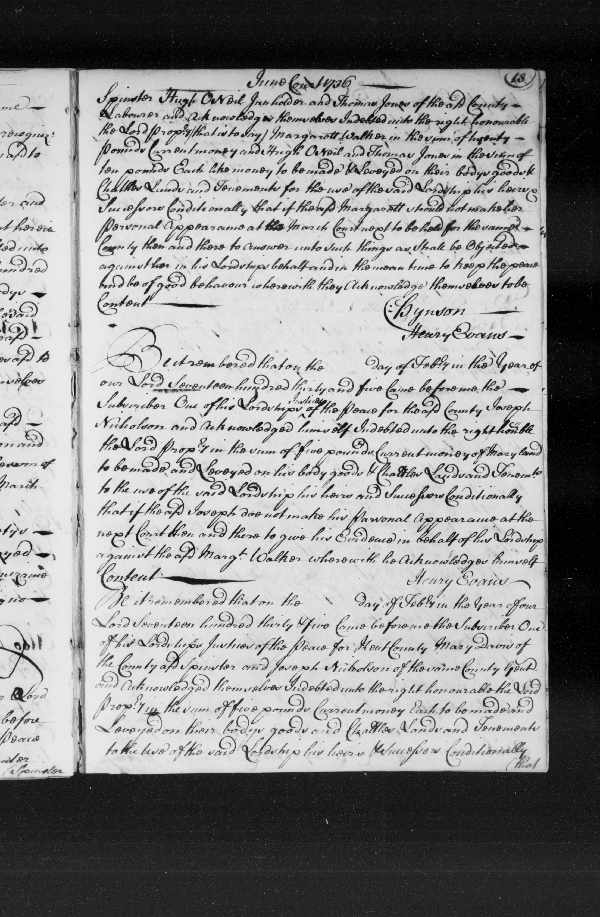 June Court 1736
13
Spinster Hugh ONeil Inholder and Thomas Jones of the afd County
Labourer and Acknowledges themselves Indebted unto the right honourable
the Lord Propry that is to say Margarett Walker in the sum of twenty
pounds Current money and Hugh ONeil and Thomas Jones in the sum of
ten pounds Each like money to be made & Leveyed on their bodys goods &
Chattles Lands and Tenements for the use of the said Lordship his heirs &
Successors Conditionally that if the afd Margarett should not make her
Personal Appearance at the March Court next to be held for the same
County then and there to Answer unto Such things as Shall be Objected
against her in his Lordships behalf and in the mean time to keep the peace
and be of good behaviour wherewith they Acknowledge themselves to be
Content
C: Hynson
Henry Evans
Be it remembered that on the day of Febry in the Year of
our Lord Seventeen hundred thirty and five Came before me the
Subscriber One of his Lordships Justices of the Peace for the afd County Joseph
Nicholson and Acknowledged himself Indebted unto the right honble
the Lord Propry in the sum of five pounds Current money of Maryland
to be made and Leveyed on his body goods & Chattles Lands and Tenemts
to the use of the said Lordship his heirs and Successors Conditionally
that if the afd Joseph doe not make his Parsonal Appearance at the
next Court then and there to give his Evidence in behalf of his Lordship
against the afd Margt Walker wherewith he Acknowledges himself
Content
Henry Evans
Be it remembered that on the day of Febry in the Year of our
Lord Seventeen hundred thirty & five Came before me the Subscriber One
of his Lordships Justices of the Peace for Kent County Mary Davis of
the County afd Spinster and Joseph Nicholson of the same County Gent
and Acknowledged themselves Indebted unto the right honourable the Lord
Propry in the sum of five pounds Current money Each to be made and
Leveyed on their bodys goods and Chattles Lands and Tenements
to the Use of the said Lordship his heirs & Successors Conditionally
that